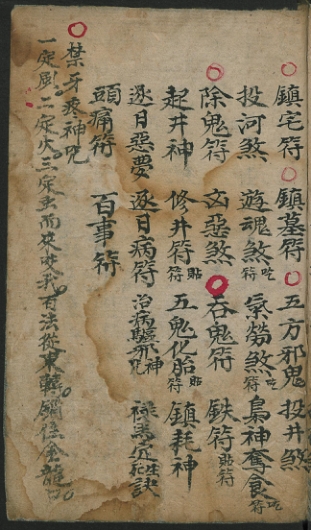 鎮宅符 鎮墓符 五方邪鬼 投井煞
投河煞 遊魂煞吃符 氣勞煞吃符 梟神奪食吃符
除鬼符 凶惡煞 吞鬼符 鉄符貼符
起井神 修井符貼符 五鬼化胎貼符 鎮耗神
逐日惡夢 逐日病符 治病驅邪神
頭痛符 百事符
禁牙疼神咒
一定風二定火三定虫而來咬我有法從東轉